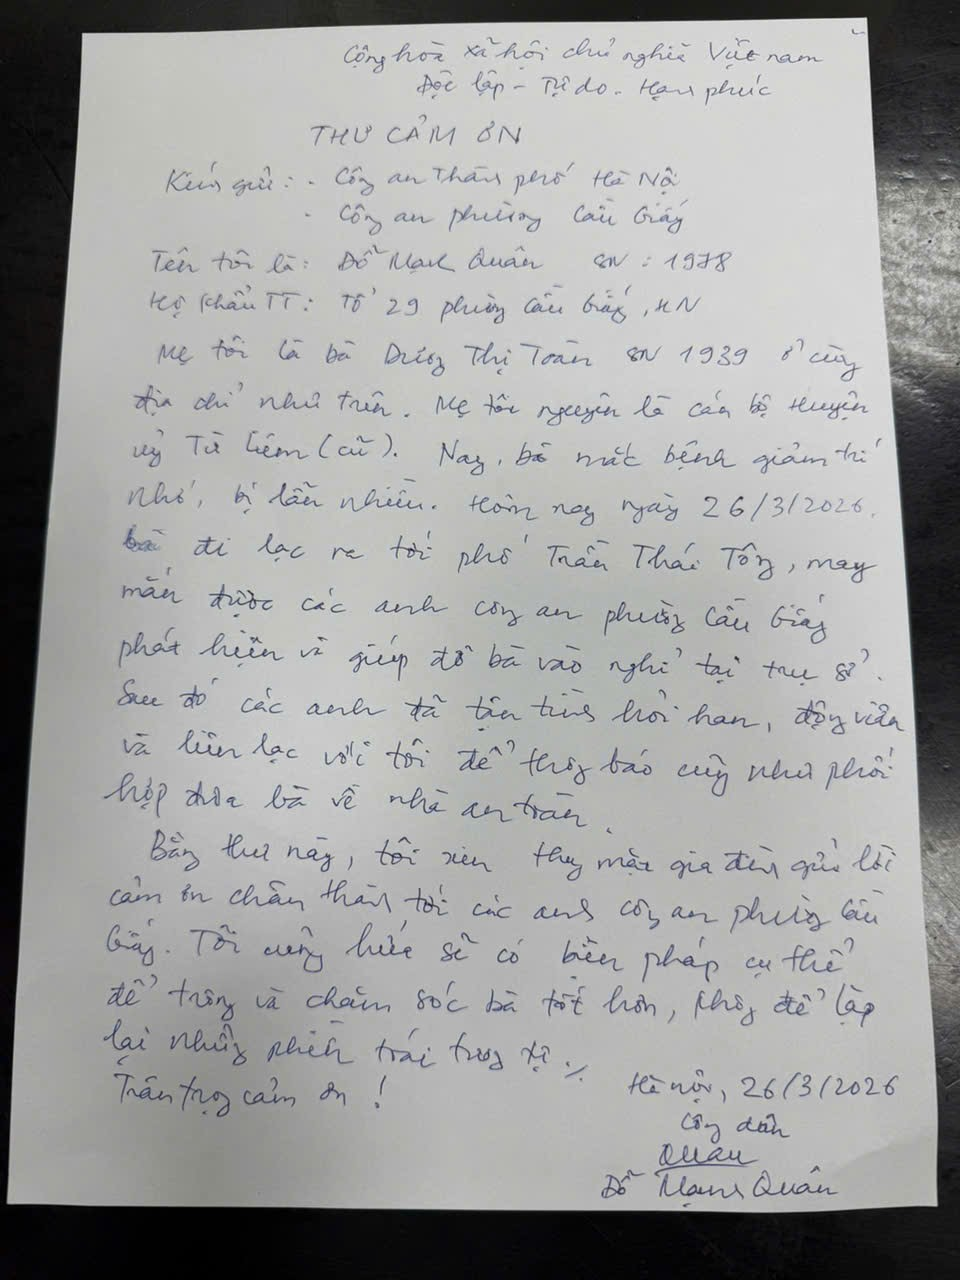 Cộng hòa xã hội chủ nghĩa Việt nam
Độc lập - Tự do - Hạnh phúc
THƯ CẢM ƠN
Kính gửi: - Công an Thành phố Hà Nội
- Công an phường Cầu Giấy
Tên tôi là: Đỗ Mạnh Quân SN: 1978
Hộ khẩu TT: Tổ 29 phường Cầu Giấy, HN
Mẹ tôi là bà Dương Thị Toàn SN 1939 ở cùng
địa chỉ như trên. Mẹ tôi nguyên là cán bộ Huyện
ủy Từ Liêm (cũ). Nay, bà mắc bệnh giảm trí
nhớ, bị lẫn nhiều. Hôm nay ngày 26/3/2026.
bà đi lạc ra tới phố Trần Thái Tông, may
mắn được các anh công an phường Cầu Giấy
phát hiện và giúp đỡ bà vào nghỉ tại trụ sở.
Sau đó các anh đã tận tình hỏi han, động viên
và liên lạc với tôi để thông báo cũng như phối
hợp đưa bà về nhà an toàn.
Bằng thư này, tôi xin thay mặt gia đình gửi lời
cảm ơn chân thành tới các anh công an phường Cầu
Giấy. Tôi cũng hứa sẽ có biện pháp cụ thể
để trông và chăm sóc bà tốt hơn, không để lặp
lại những phiền trái tương tự ./.
Trân trọng cảm ơn!
Hà nội, 26/3/2026
Công dân
Quân
Đỗ Mạnh Quân